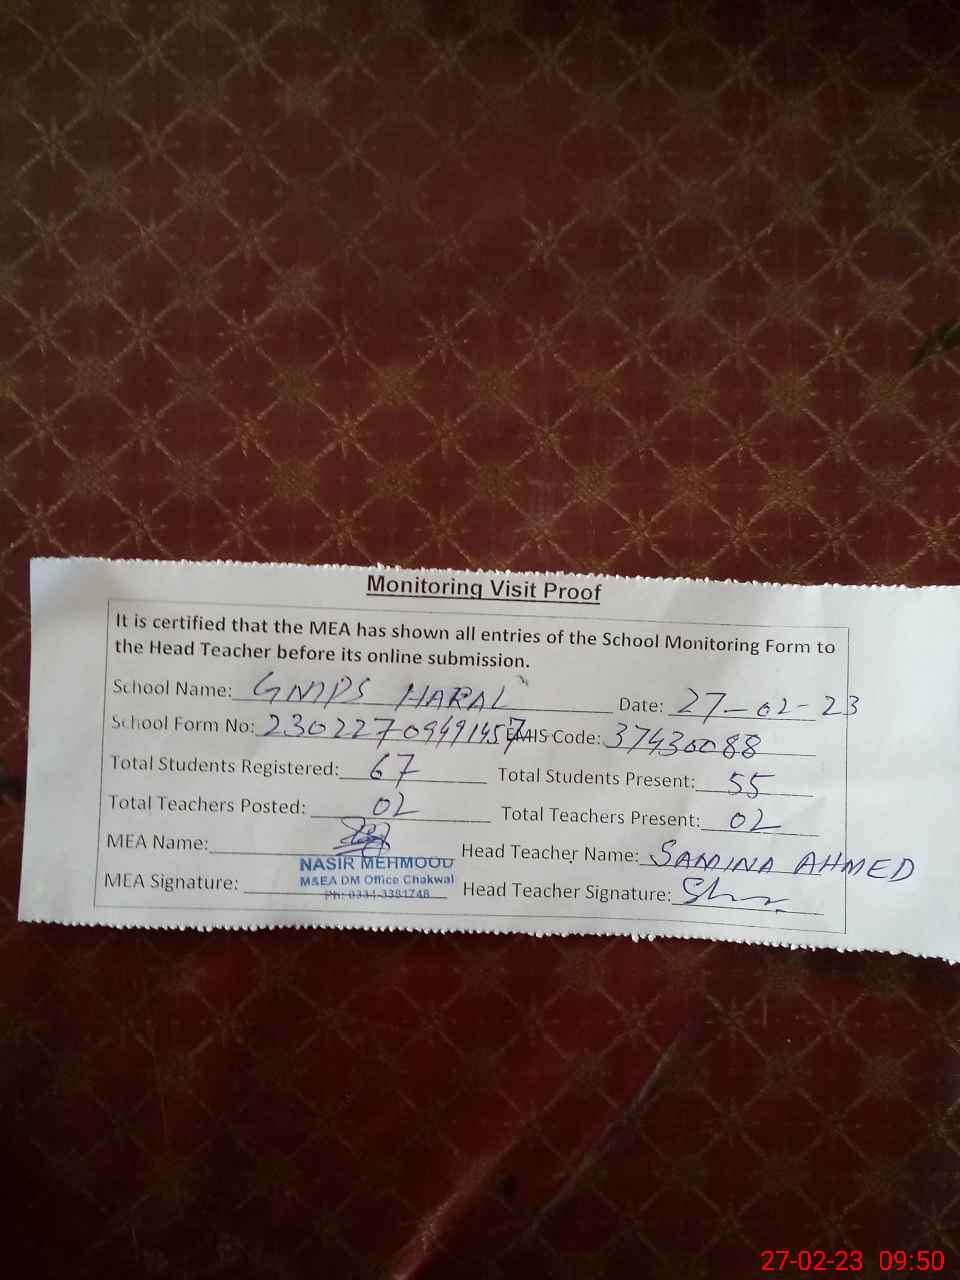 Monitoring Visit Proof
It is certified that the MEA has shown all entries of the School Monitoring Form to
the Head Teacher before its online submission.
School Name: GMPS HARAL Date: 27-02-23
School Form No: 23022709491457 EMIS Code: 37430088
Total Students Registered: 67 Total Students Present: 55
Total Teachers Posted: 02 Total Teachers Present: 02
MEA Name: Head Teacher Name: SAMINA AHMED
NASIR MEHMOOD
M&EA DM Office Chakwal
MEA Signature: Head Teacher Signature:
Ph: 0334-3381748
27-02-23 09:50